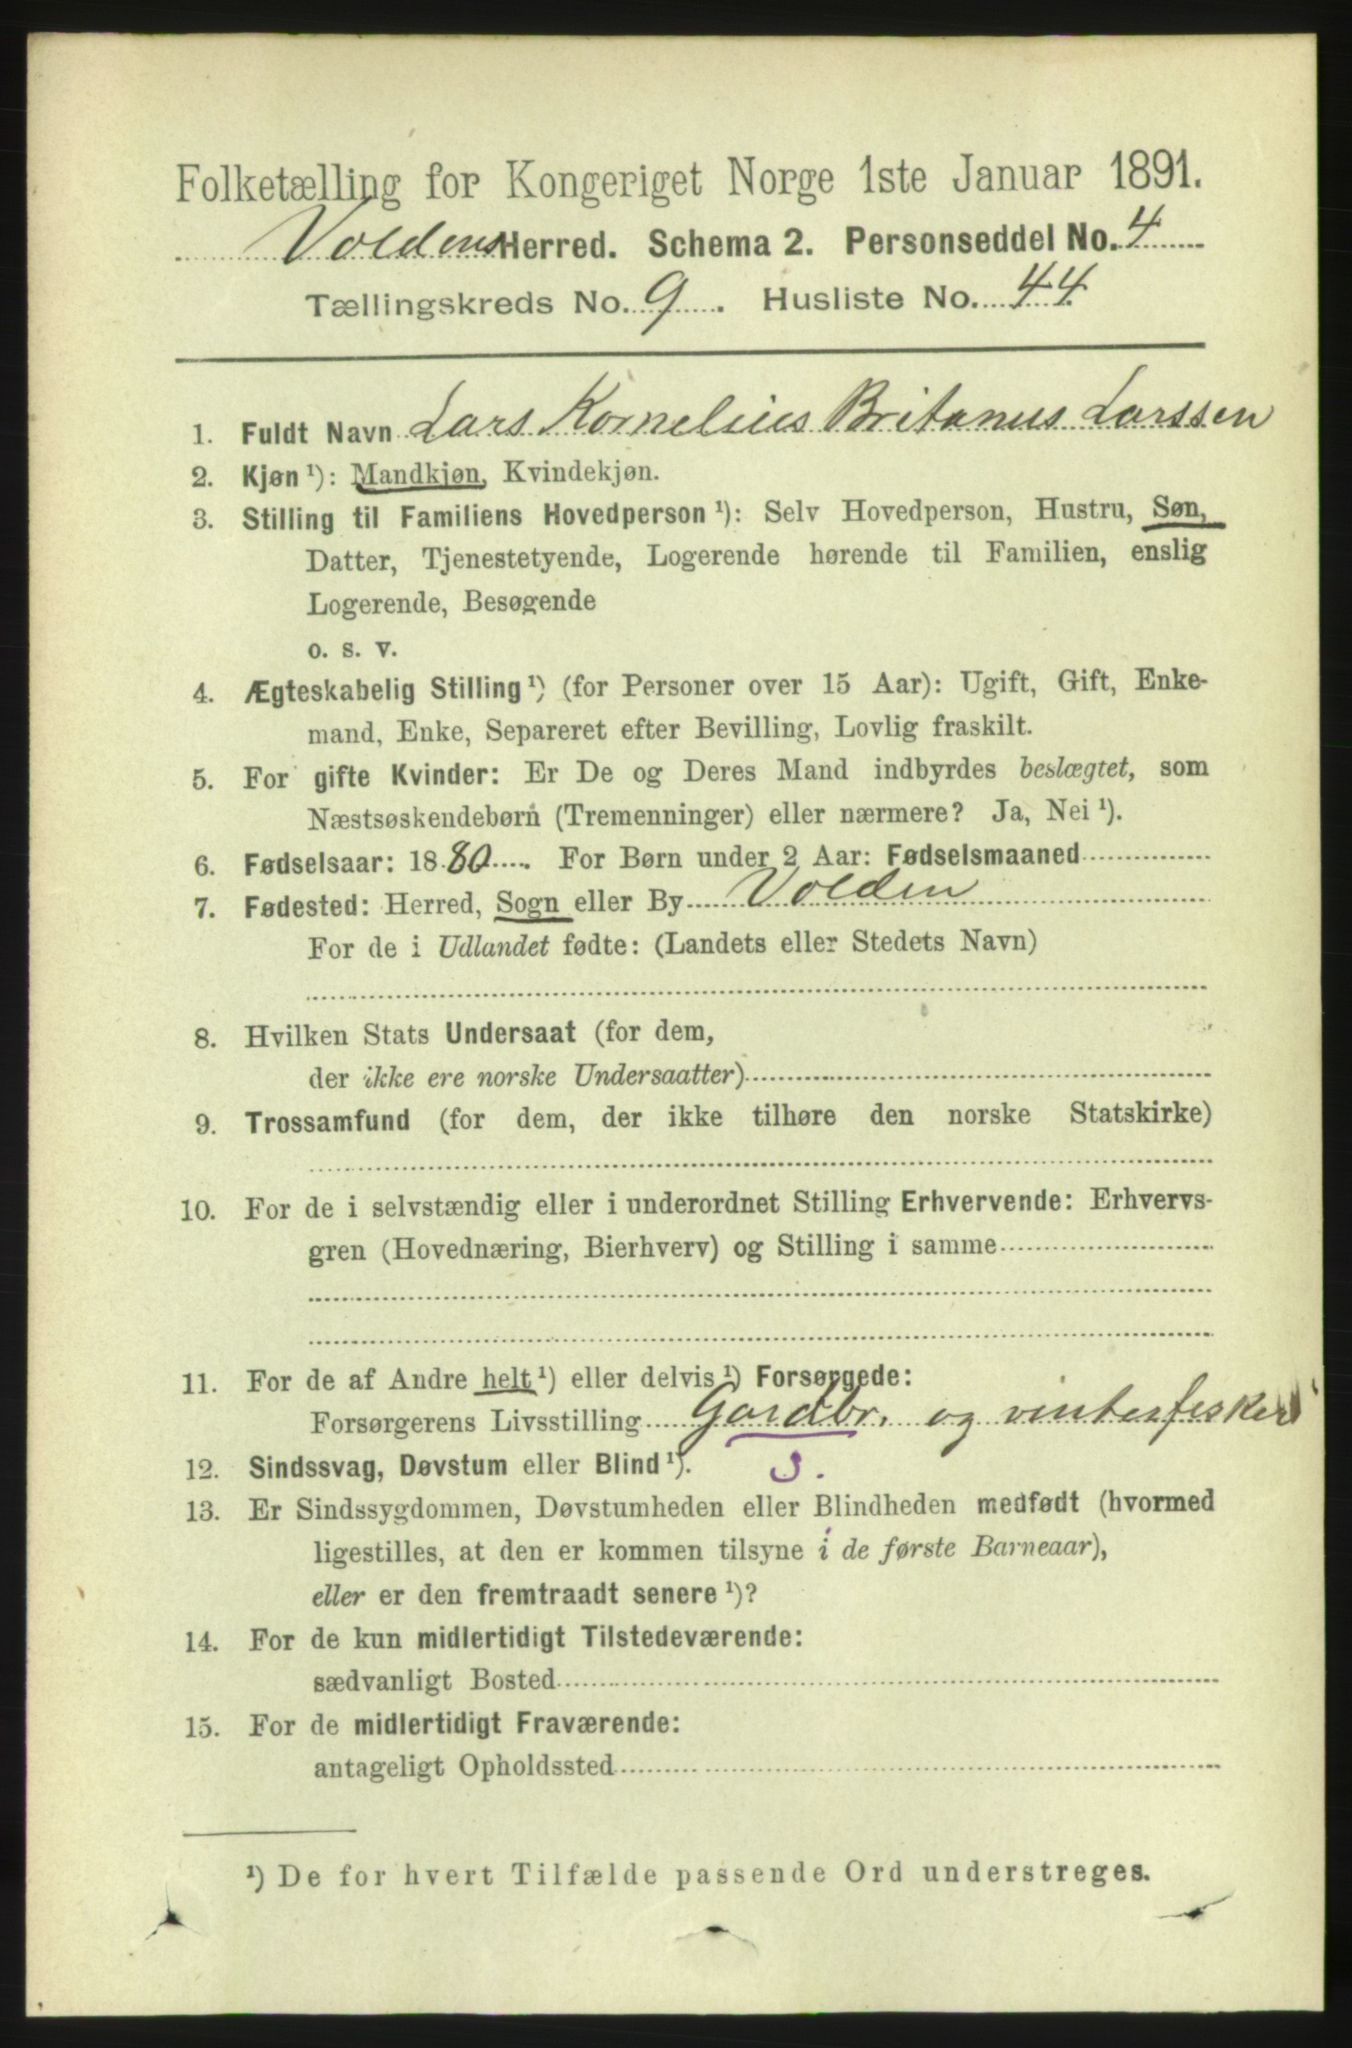 Folketælling for Kongeriget Norge 1ste Januar 1891.
Voldens Herred. Schema 2. Personseddel No. 4
Tællingskreds No. 9. Husliste No. 44
1. Fuldt Navn Lars Kornelius Britanus Larssen
2. Kjøn ¹): Mandkjøn, Kvindekjøn.
3. Stilling til Familiens Hovedperson ¹): Selv Hovedperson, Hustru, Søn,
Datter, Tjenestetyende, Logerende hørende til Familien, enslig
Logerende, Besøgende
o. s. v.
4. Ægteskabelig Stilling ¹) (for Personer over 15 Aar): Ugift, Gift, Enke-
mand, Enke, Separeret efter Bevilling, Lovlig fraskilt.
5. For gifte Kvinder: Er De og Deres Mand indbyrdes beslægtet, som
Næstsøskendebørn (Tremenninger) eller nærmere? Ja, Nei ¹).
6. Fødselsaar: 1880. For Børn under 2 Aar: Fødselsmaaned
7. Fødested: Herred, Sogn eller By Volden
For de i Udlandet fødte: (Landets eller Stedets Navn)
8. Hvilken Stats Undersaat (for dem,
der ikke ere norske Undersaatter)
9. Trossamfund (for dem, der ikke tilhøre den norske Statskirke)
10. For de i selvstændig eller i underordnet Stilling Erhvervende: Erhvervs-
gren (Hovednæring, Bierhverv) og Stilling i samme
11. For de af Andre helt ¹) eller delvis ¹) Forsørgede:
Forsørgerens Livsstilling Gardbr. og vinterfisker
12. Sindssvag, Døvstum eller Blind ¹).
13. Er Sindssygdommen, Døvstumheden eller Blindheden medfødt (hvormed
ligestilles, at den er kommen tilsyne i de første Barneaar),
eller er den fremtraadt senere ¹)?
14. For de kun midlertidigt Tilstedeværende:
sædvanligt Bosted
15. For de midlertidigt Fraværende:
antageligt Opholdssted
¹) De for hvert Tilfælde passende Ord understreges.